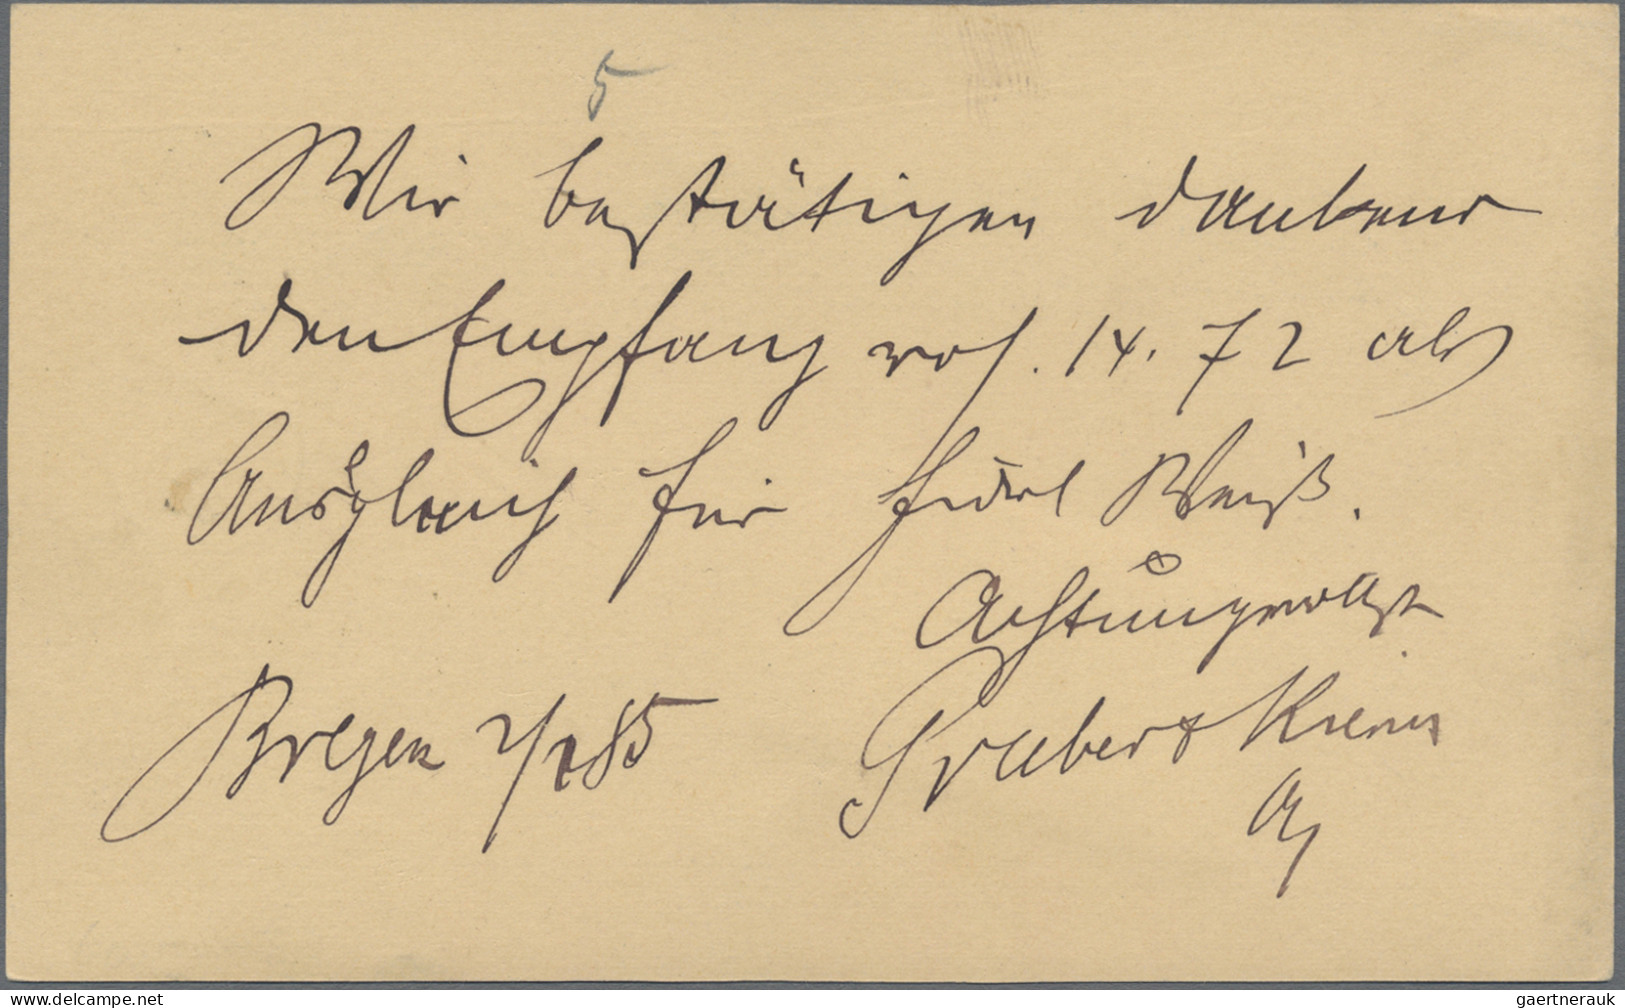 5
Wir bestätigen dankend
den Empfang von f. 14. 72 als
Ausgleich für Fidel Weiß.
Achtungsvollst
Bregen 2/1 85
Gruber &
delcampe.net
gaertnerauk